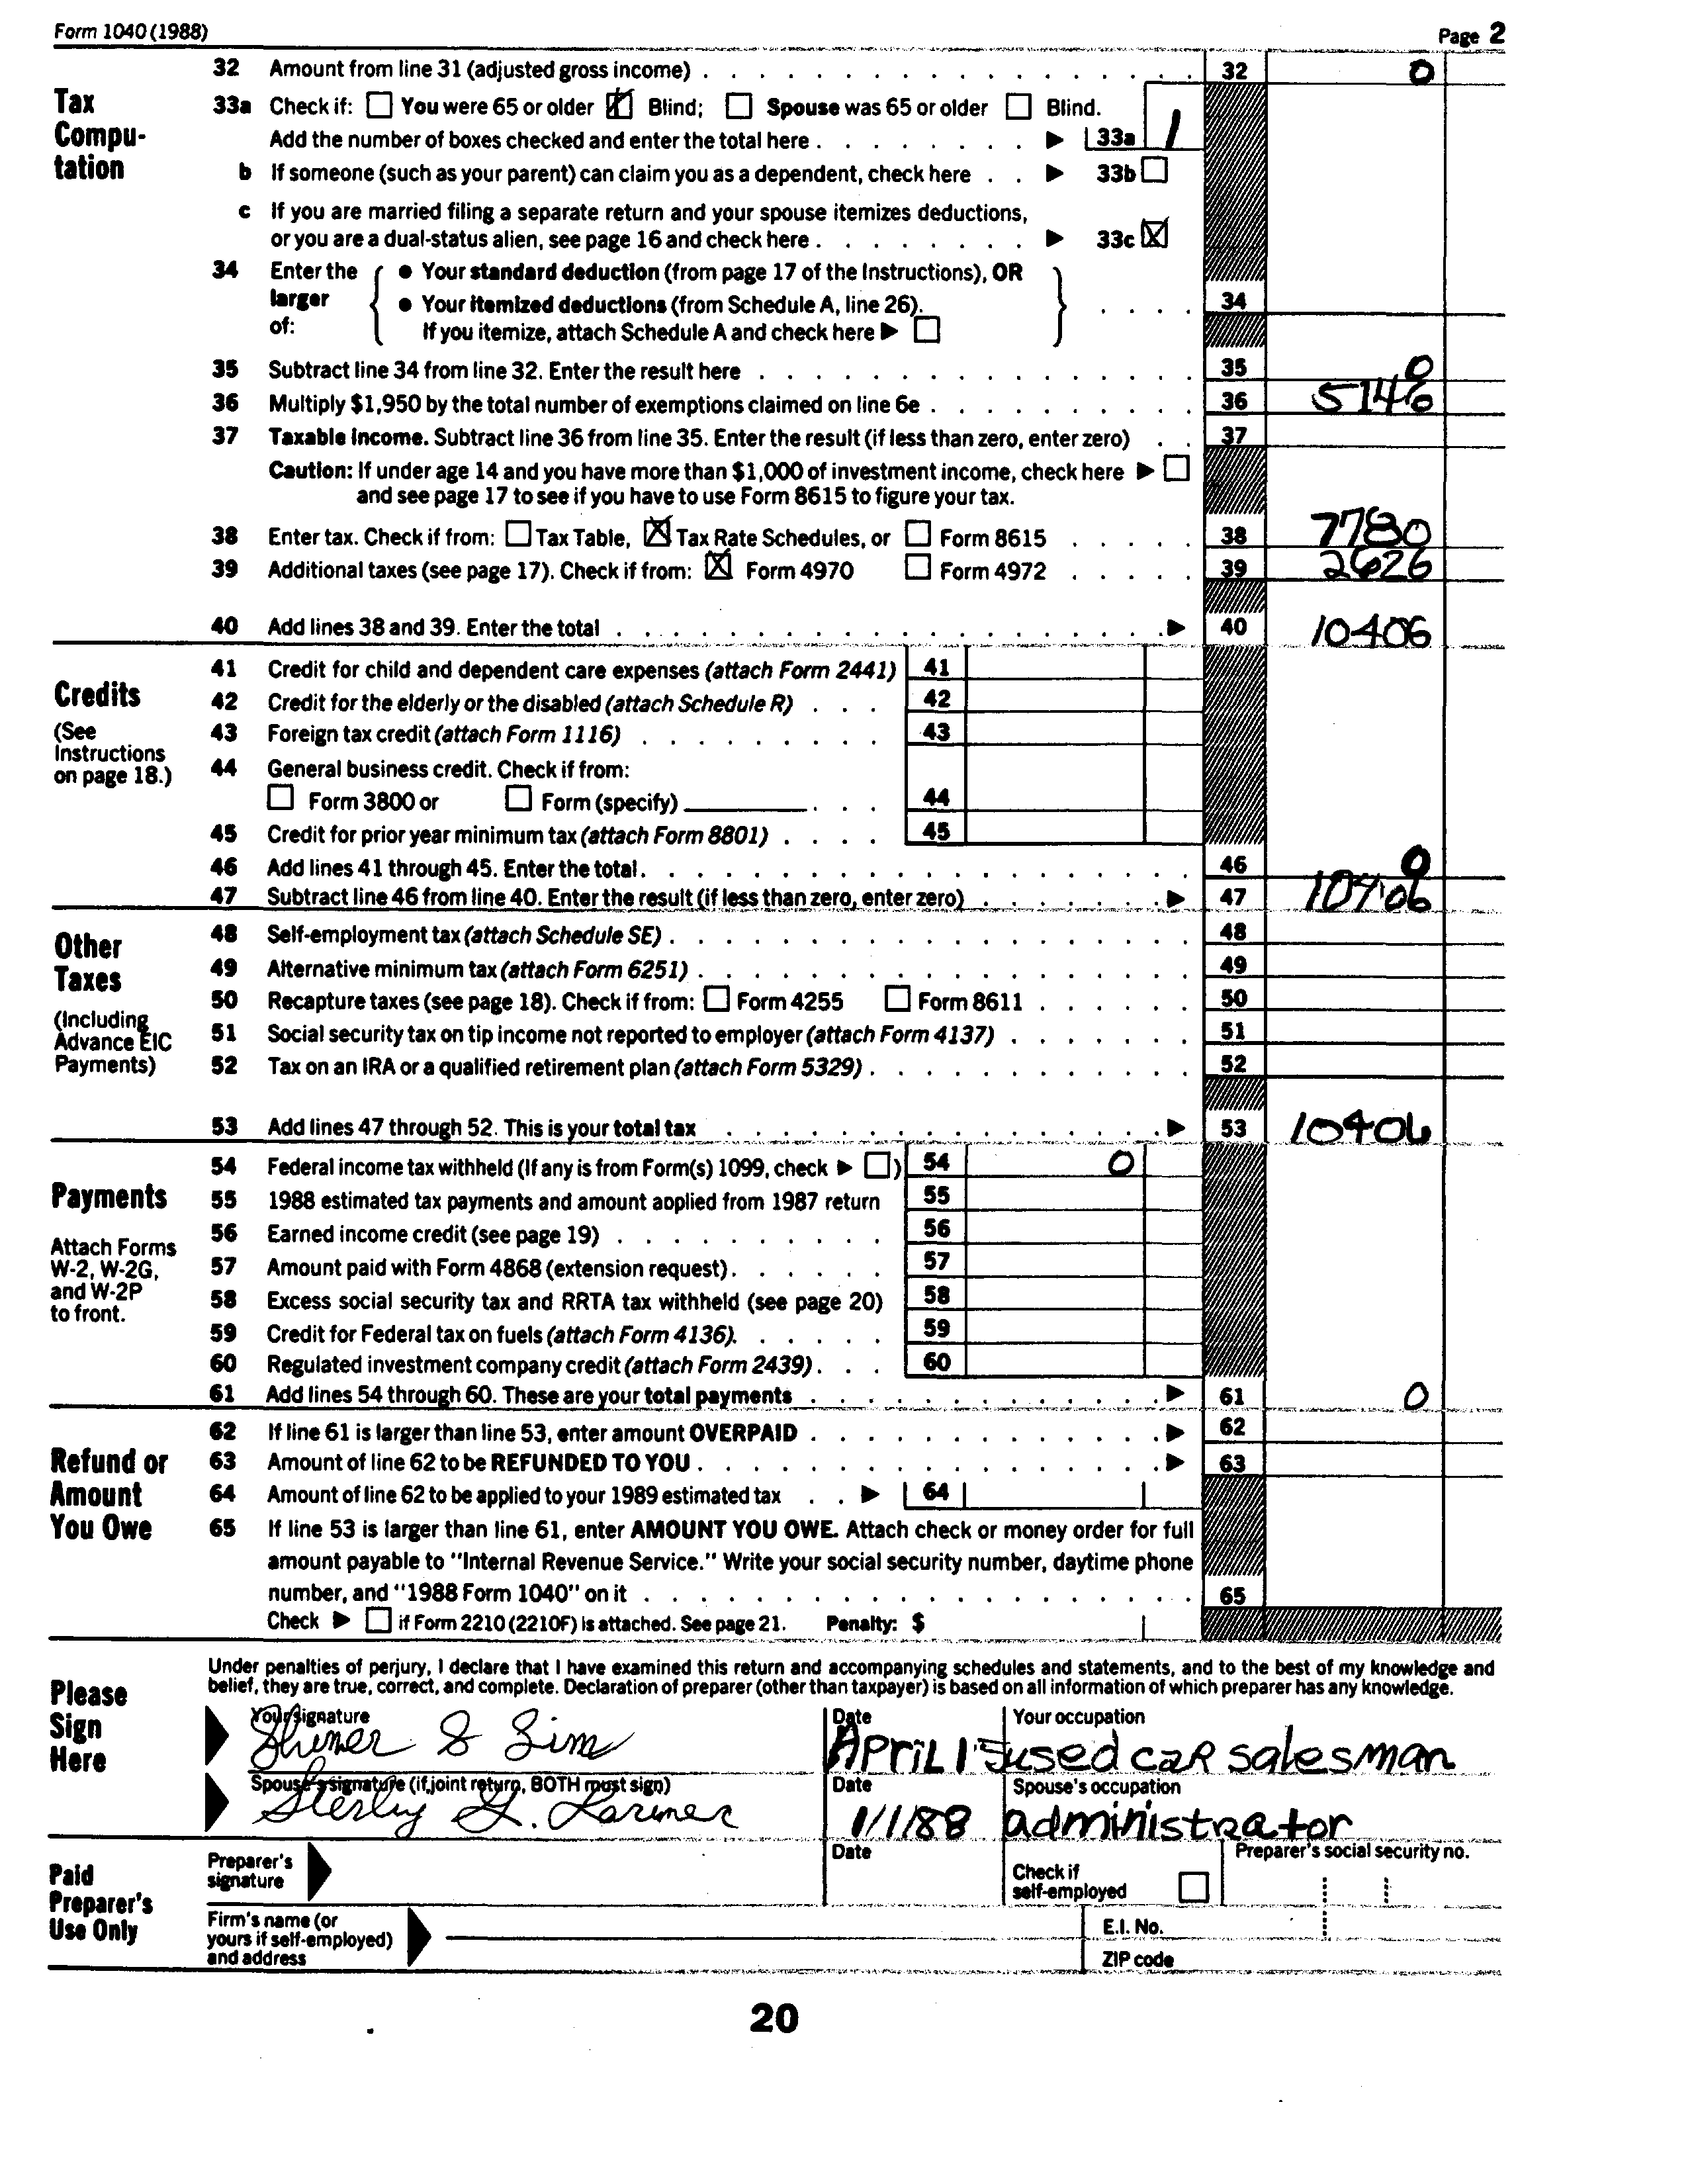 Form 1040 (1988) Page 2
Tax Compu-tation
32 Amount from line 31 (adjusted gross income) 32 0
33a Check if: You were 65 or older Blind; Spouse was 65 or older Blind.
Add the number of boxes checked and enter the total here 33a 1
b If someone (such as your parent) can claim you as a dependent, check here 33b
c If you are married filing a separate return and your spouse itemizes deductions,
or you are a dual-status alien, see page 16 and check here 33c X
34 Enter the larger of:
● Your standard deduction (from page 17 of the Instructions), OR
● Your itemized deductions (from Schedule A, line 26). 34
If you itemize, attach Schedule A and check here
35 Subtract line 34 from line 32. Enter the result here 35 0
36 Multiply $1,950 by the total number of exemptions claimed on line 6e 36 5146
37 Taxable income. Subtract line 36 from line 35. Enter the result (if less than zero, enter zero) 37
Caution: If under age 14 and you have more than $1,000 of investment income, check here
and see page 17 to see if you have to use Form 8615 to figure your tax.
38 Enter tax. Check if from: Tax Table, X Tax Rate Schedules, or Form 8615 38 7780
39 Additional taxes (see page 17). Check if from: X Form 4970 Form 4972 39 2626
40 Add lines 38 and 39. Enter the total 40 10406
Credits
(See Instructions on page 18.)
41 Credit for child and dependent care expenses (attach Form 2441) 41
42 Credit for the elderly or the disabled (attach Schedule R) 42
43 Foreign tax credit (attach Form 1116) 43
44 General business credit. Check if from:
Form 3800 or Form (specify) 44
45 Credit for prior year minimum tax (attach Form 8801) 45
46 Add lines 41 through 45. Enter the total 46 0
47 Subtract line 46 from line 40. Enter the result (if less than zero, enter zero) 47 10406
Other Taxes
(Including Advance EIC Payments)
48 Self-employment tax (attach Schedule SE) 48
49 Alternative minimum tax (attach Form 6251) 49
50 Recapture taxes (see page 18). Check if from: Form 4255 Form 8611 50
51 Social security tax on tip income not reported to employer (attach Form 4137) 51
52 Tax on an IRA or a qualified retirement plan (attach Form 5329) 52
53 Add lines 47 through 52. This is your total tax 53 10406
Payments
Attach Forms W-2, W-2G, and W-2P to front.
54 Federal income tax withheld (If any is from Form(s) 1099, check ) 54 0
55 1988 estimated tax payments and amount applied from 1987 return 55
56 Earned income credit (see page 19) 56
57 Amount paid with Form 4868 (extension request) 57
58 Excess social security tax and RRTA tax withheld (see page 20) 58
59 Credit for Federal tax on fuels (attach Form 4136) 59
60 Regulated investment company credit (attach Form 2439) 60
61 Add lines 54 through 60. These are your total payments 61 0
Refund or Amount You Owe
62 If line 61 is larger than line 53, enter amount OVERPAID 62
63 Amount of line 62 to be REFUNDED TO YOU 63
64 Amount of line 62 to be applied to your 1989 estimated tax 64
65 If line 53 is larger than line 61, enter AMOUNT YOU OWE. Attach check or money order for full
amount payable to "Internal Revenue Service." Write your social security number, daytime phone
number, and "1988 Form 1040" on it 65
Check if Form 2210 (2210F) is attached. See page 21. Penalty: $
Please Sign Here
Under penalties of perjury, I declare that I have examined this return and accompanying schedules and statements, and to the best of my knowledge and
belief, they are true, correct, and complete. Declaration of preparer (other than taxpayer) is based on all information of which preparer has any knowledge.
Your signature Date Your occupation
Shimer S Zim APRIL 15 used caR salesman
Spouse's signature (if joint return, BOTH must sign) Date Spouse's occupation
G. Larimer 1/1/88 administrator
Paid Preparer's Use Only
Preparer's signature Date Check if self-employed Preparer's social security no.
Firm's name (or yours if self-employed) and address E.I. No.
ZIP code
20